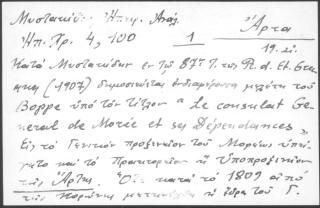 Μυστακίδης Ηπειρ. Ανάλ.
Άρτα
Ηπ. Χρ. 4, 100
1
19. αι.
Κατά Μυστακίδην εν τω 87ω Τ. της R. d. Et. Grecques (1907) δημοσιεύεται ενδιαφέρουσα μελέτη του
Boppe υπό τον τίτλον "Le consulat General de Morée et ses Dépendances"
Εις το Γενικόν προξενείον του Μορέως υπήγετο και το Υποπροξενείον
της Άρτης. Ότε κατά το 1809 από
της Κορώνης μετηνέχθη η έδρα του Γ.